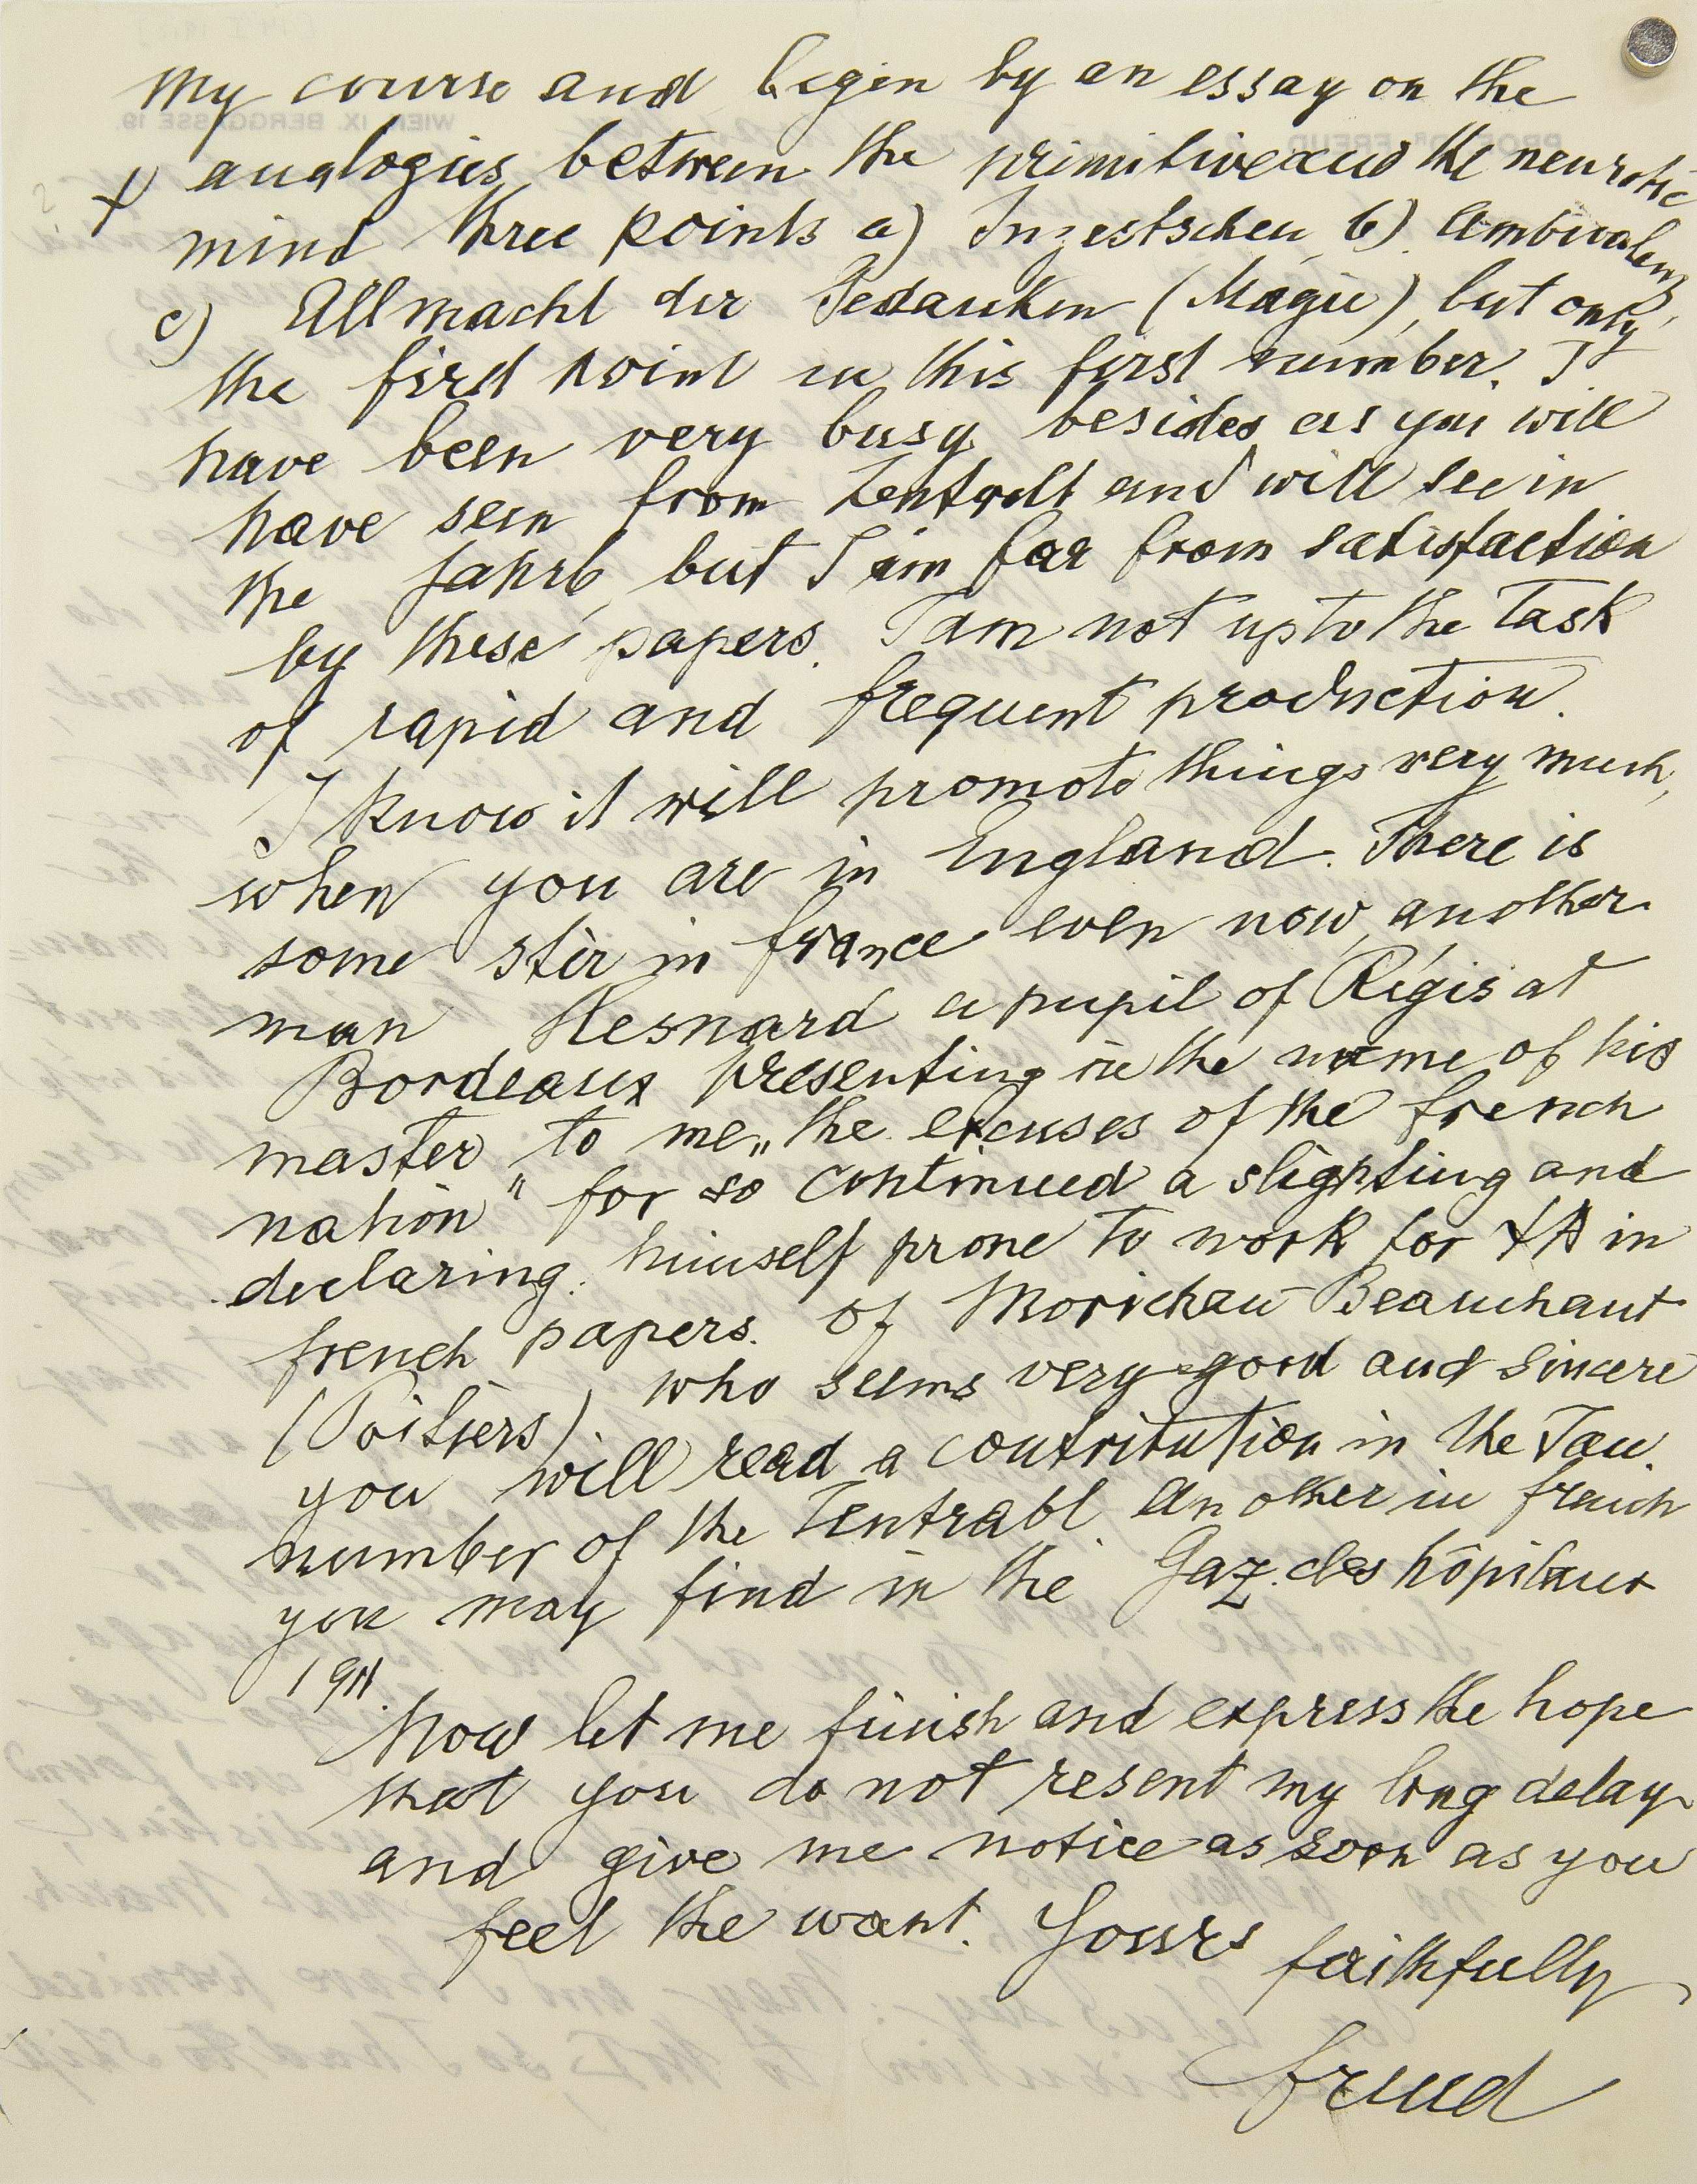 my course and begin by an essay on the
analogies between the primitive and the neurotic
mind three points a) Inzestscheu, b) Ambivalenz
c) Allmacht der Gedanken (Magie), but only
the first point in this first number. I
have been very busy besides as you will
have seen from Zentralbl and will see in
the Jahrb, but I am far from satisfaction
by these papers. I am not up to the task
of rapid and frequent production.
I know it will promote things very much,
when you are in England. There is
some stir in france even now, another
man Hesnard a pupil of Régis at
Bordeaux presenting in the name of his
master to me „the excuses of the french
nation" for so continued a slighting and
declaring himself prone to work for ΨA in
french papers. Of Morichau-Beauchant
(Poitiers) who seems very good and sincere
you will read a contribution in the Jan.
number of the Zentralbl. another in french
you may find in the Gaz. des hôpitaux
1911.
Now let me finish and express the hope
that you do not resent my long delay
and give me notice as soon as you
feel the want. Yours faithfully
Freud
WIEN IX. BERGGASSE 19.